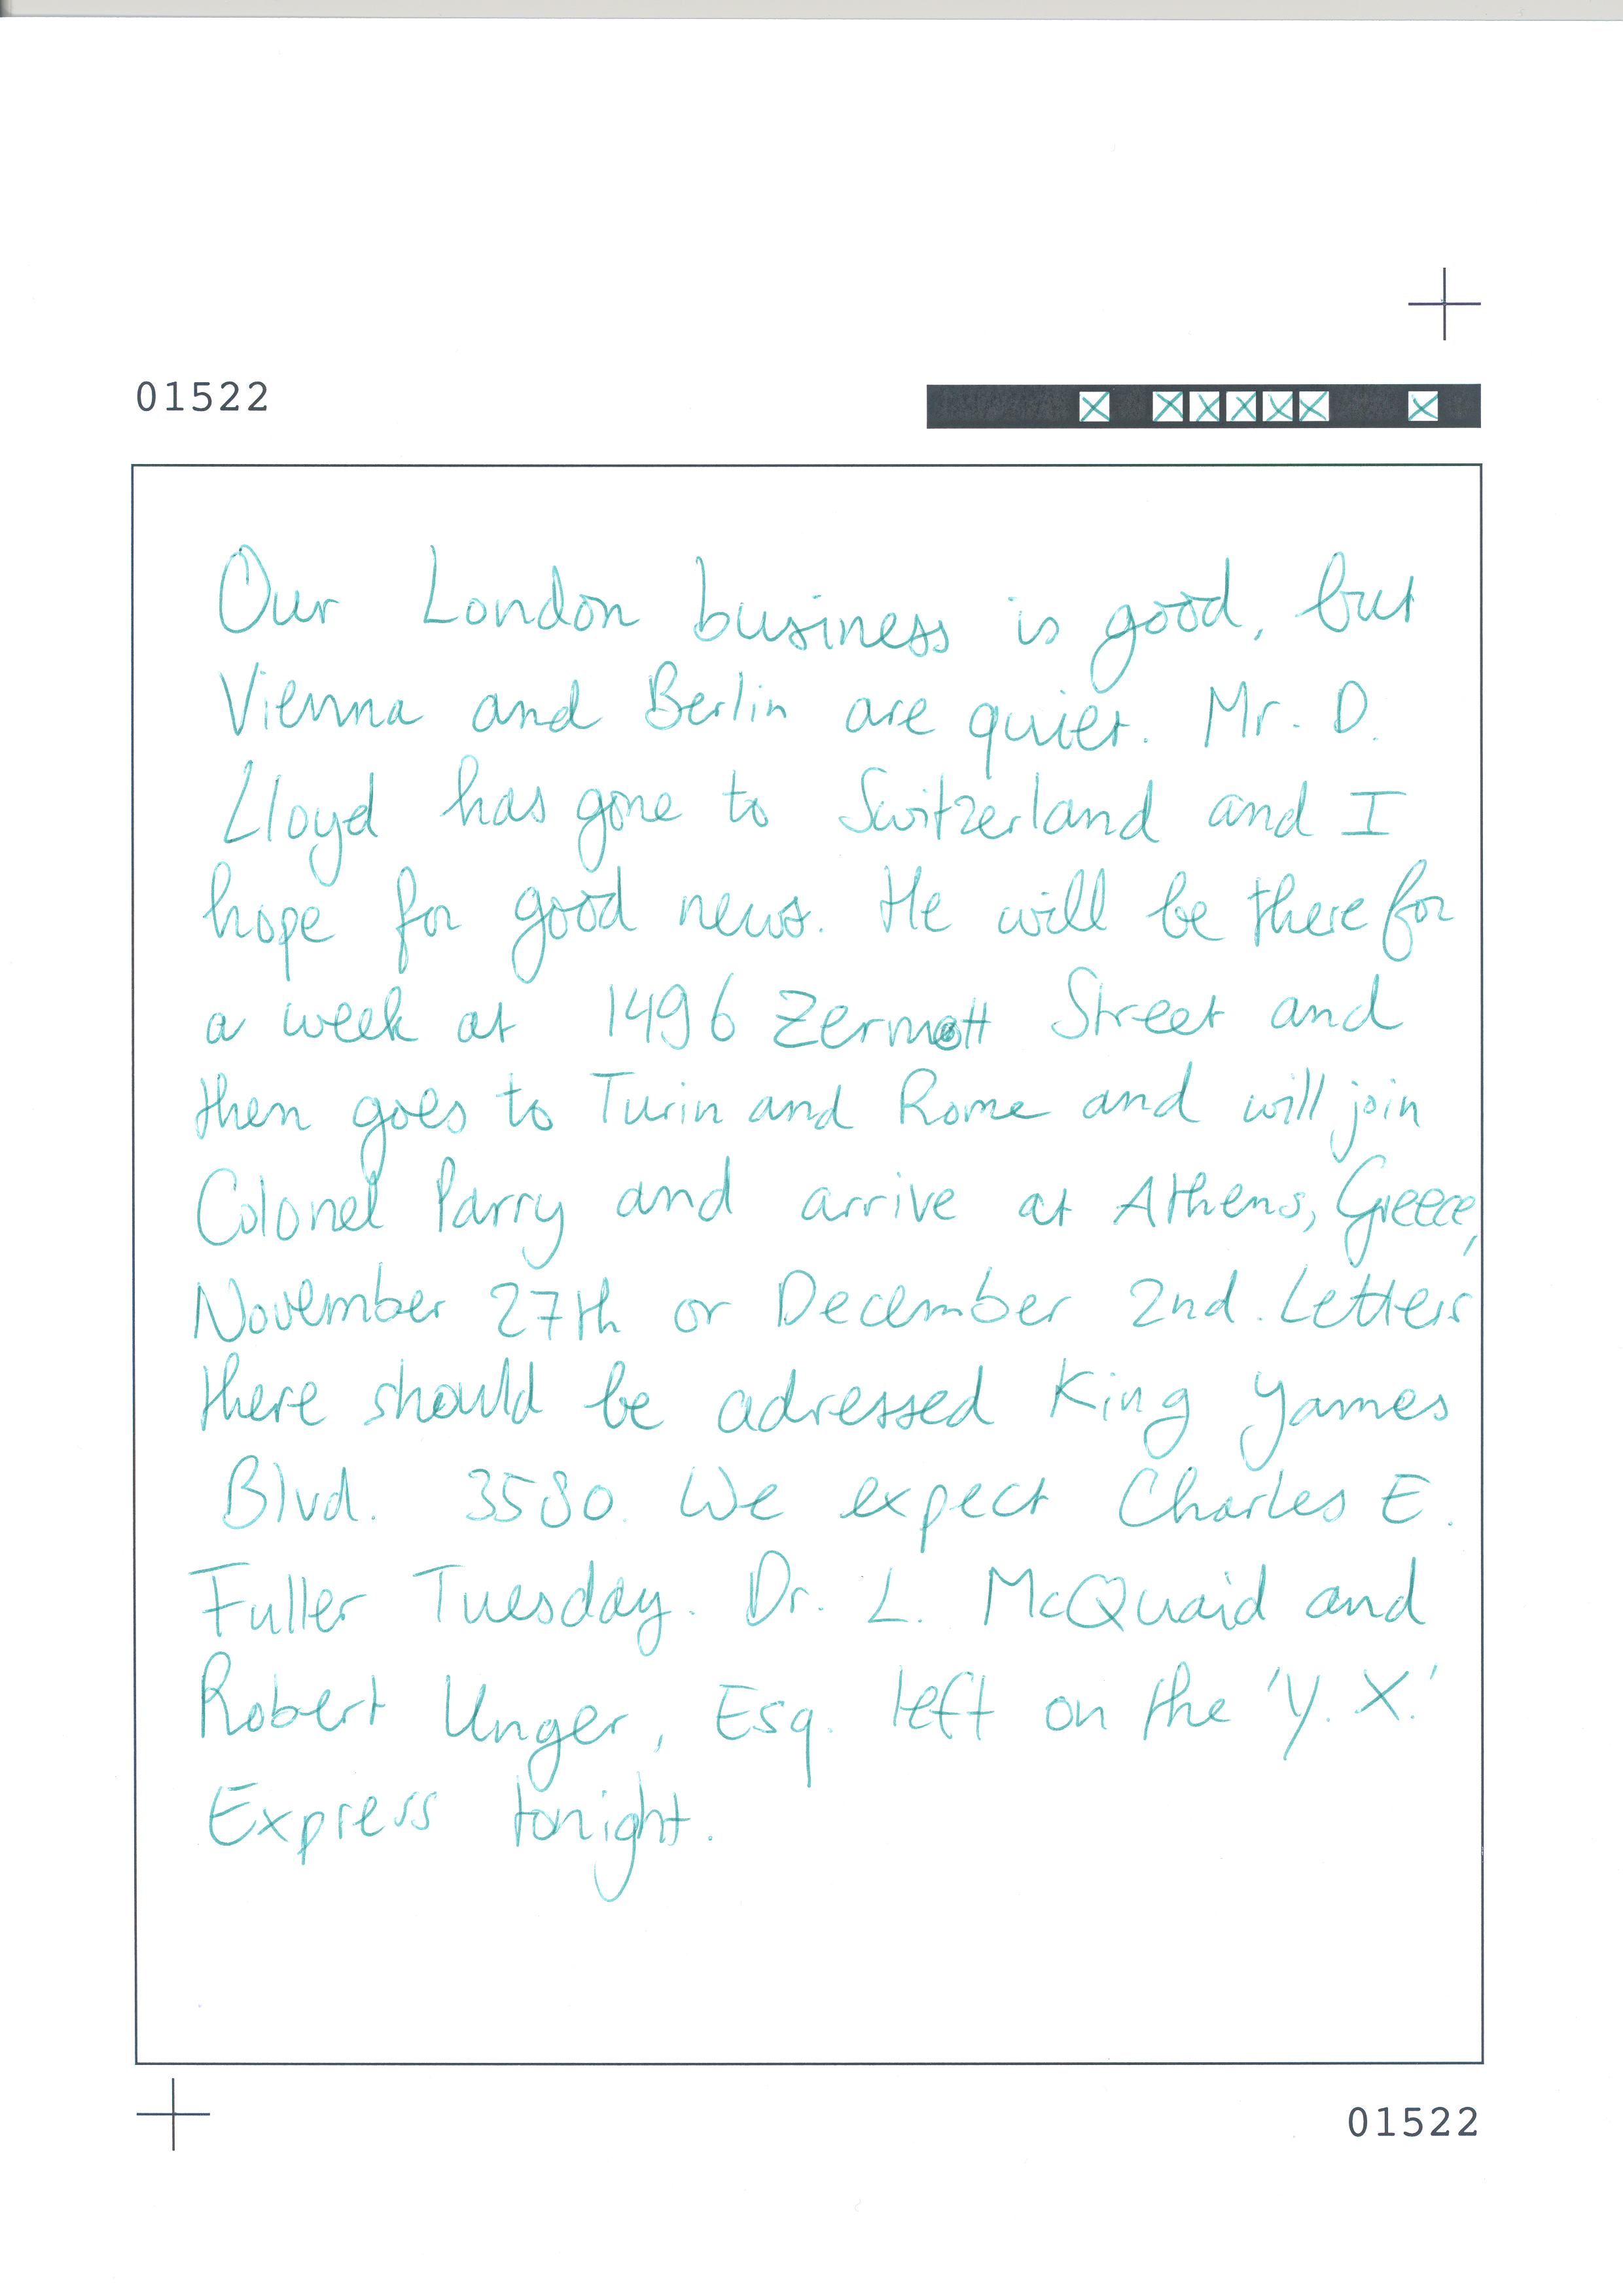 01522
Our London business is good, but
Vienna and Berlin are quiet. Mr. D.
Lloyd has gone to Switzerland and I
hope for good news. He will be there for
a week at 1496 Zermott Street and
then goes to Turin and Rome and will join
Colonel Parry and arrive at Athens, Greece,
November 27th or December 2nd. Letters
there should be adressed King Yames
Blvd. 3580. We expect Charles E.
Fuller Tuesday. Dr. L. McQuaid and
Robert Unger, Esq. left on the 'Y. X.'
Express tonight.
01522